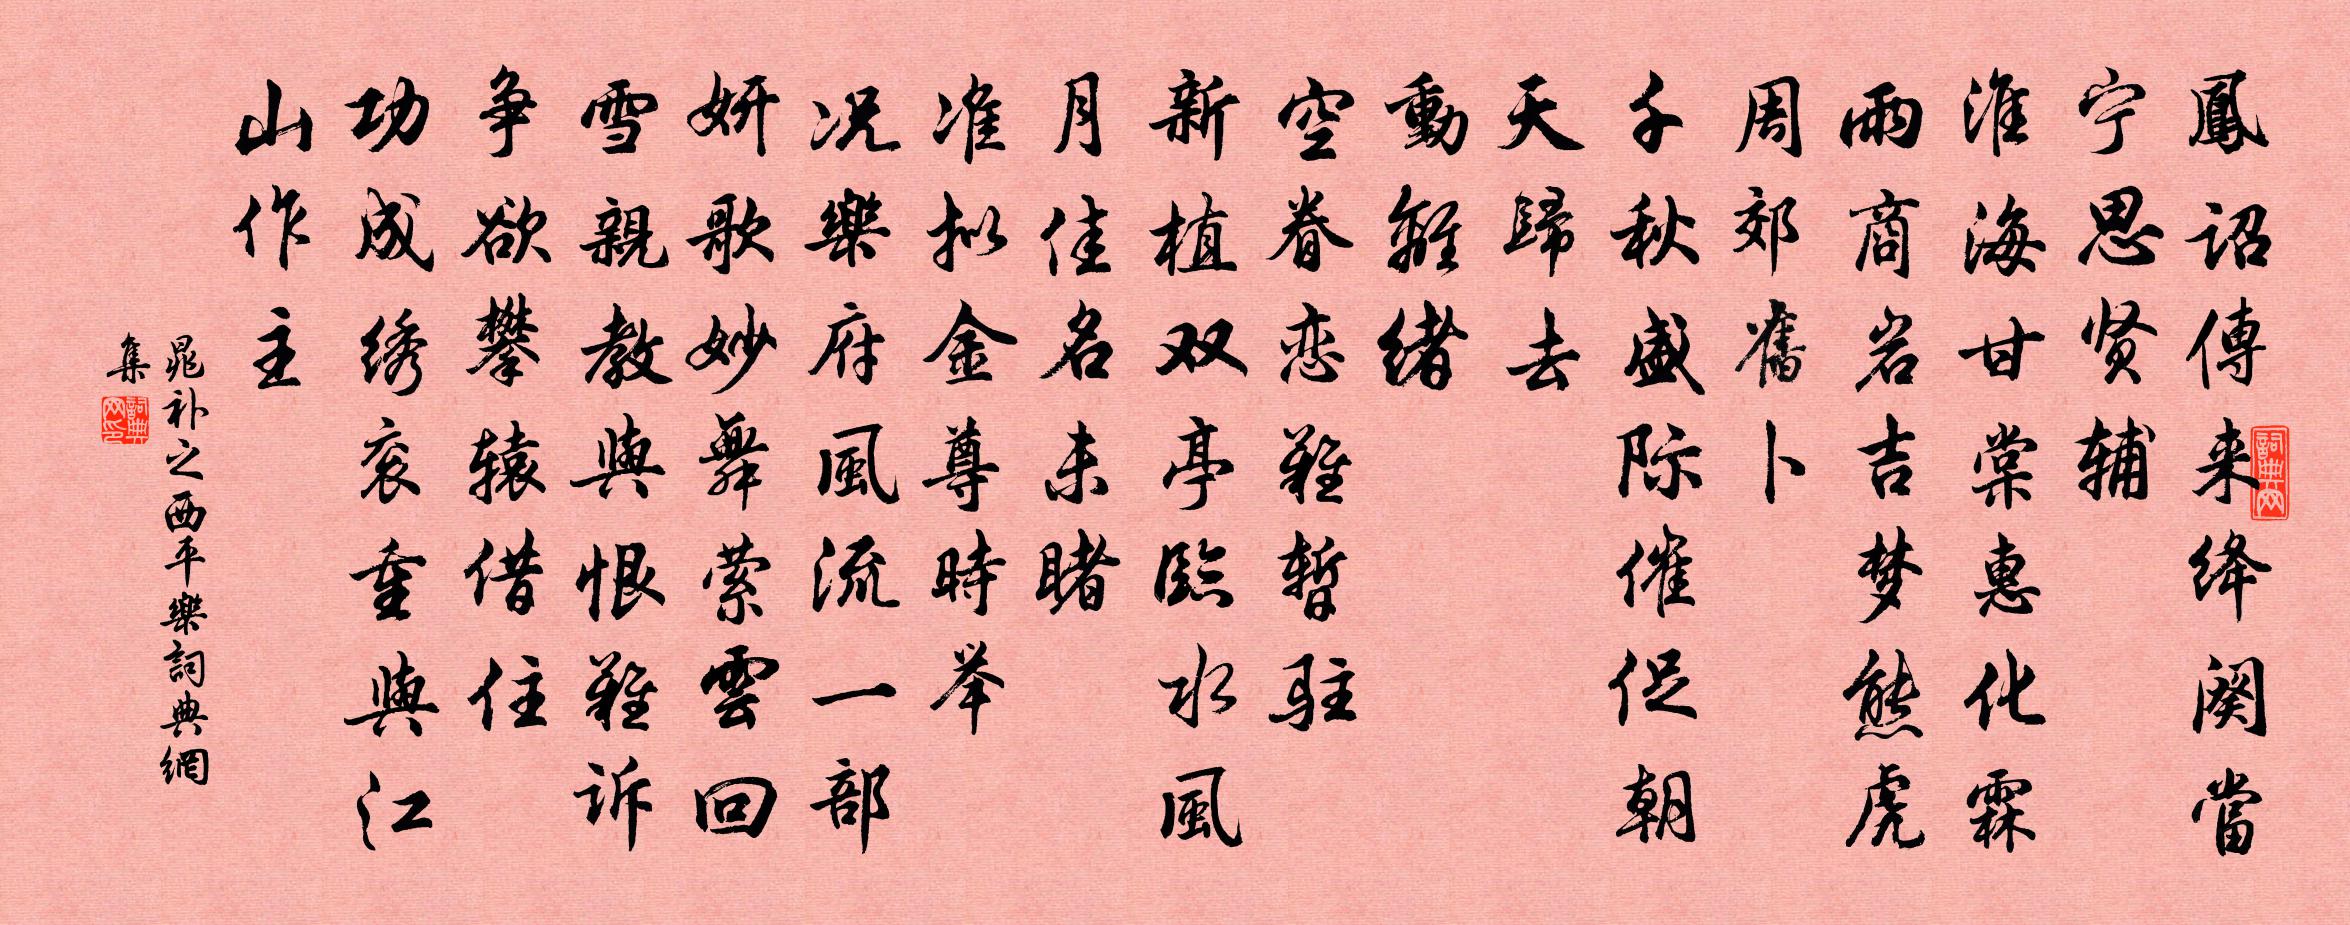 鳳詔傳来绛阙當
宁思贤辅
淮海甘棠惠化霖
雨商岩吉梦熊虎
周郊舊卜
千秋盛际催促朝
天歸去
動離绪
空眷恋難暫駐
新植双亭臨水風
月佳名未睹
准拟金尊時举
况樂府風流一部
妍歌妙舞萦雲回
雪親教與恨難诉
争欲攀辕借住
功成绣衮重與江
山作主
晁补之西平樂詞典網
集
詞典网
詞典网印